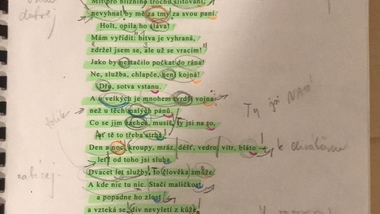 Mít pro bližního trochu slitování,
nevyhnat by mě za tmy za svou paní.
Holt, opila ho sláva!
Mám vyřídit: bitva je vyhraná,
zdržel jsem se, ale už se vracím!
Jako by nestačilo počkat do rána!
Ne, služba, chlapče, není kojná!
Dřu, sotva vstanu.
A u velkých je mnohem tvrdší vojna
než u těch malých pánů.
Co se jim zachce, musíš, ty jsi na to,
ať tě to třeba strhá.
Den a noc, kroupy, mráz, déšť, vedro, vítr, bláto
leť! od toho jsi sluha.
Dvacet let služby, to člověka zmůže.
A kde nic tu nic. Stačí maličkost
a popadne ho zlost
a vzteká se, div nevyletí z kůže.
Ty jsi